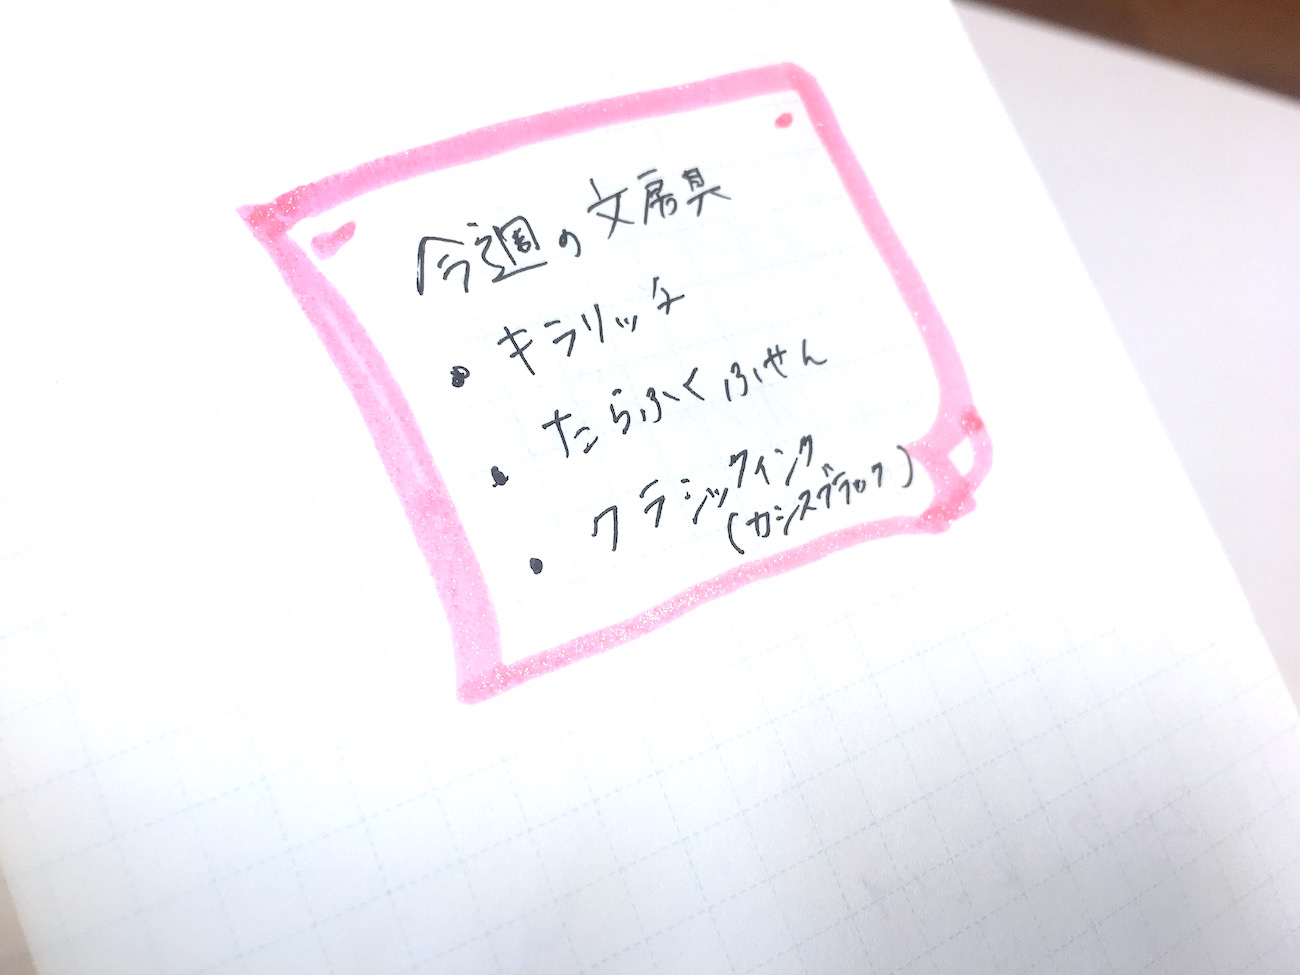 今週の文房具
・キラリッチ
・たらふくふせん
・クラシックインク
(カシスブラック)